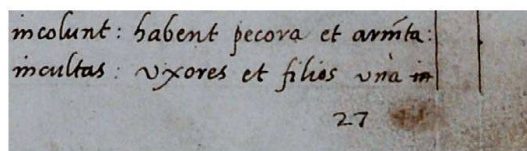 incolunt: habent pecora et arm̃ta:
incultas: uxores et filios unà in
27